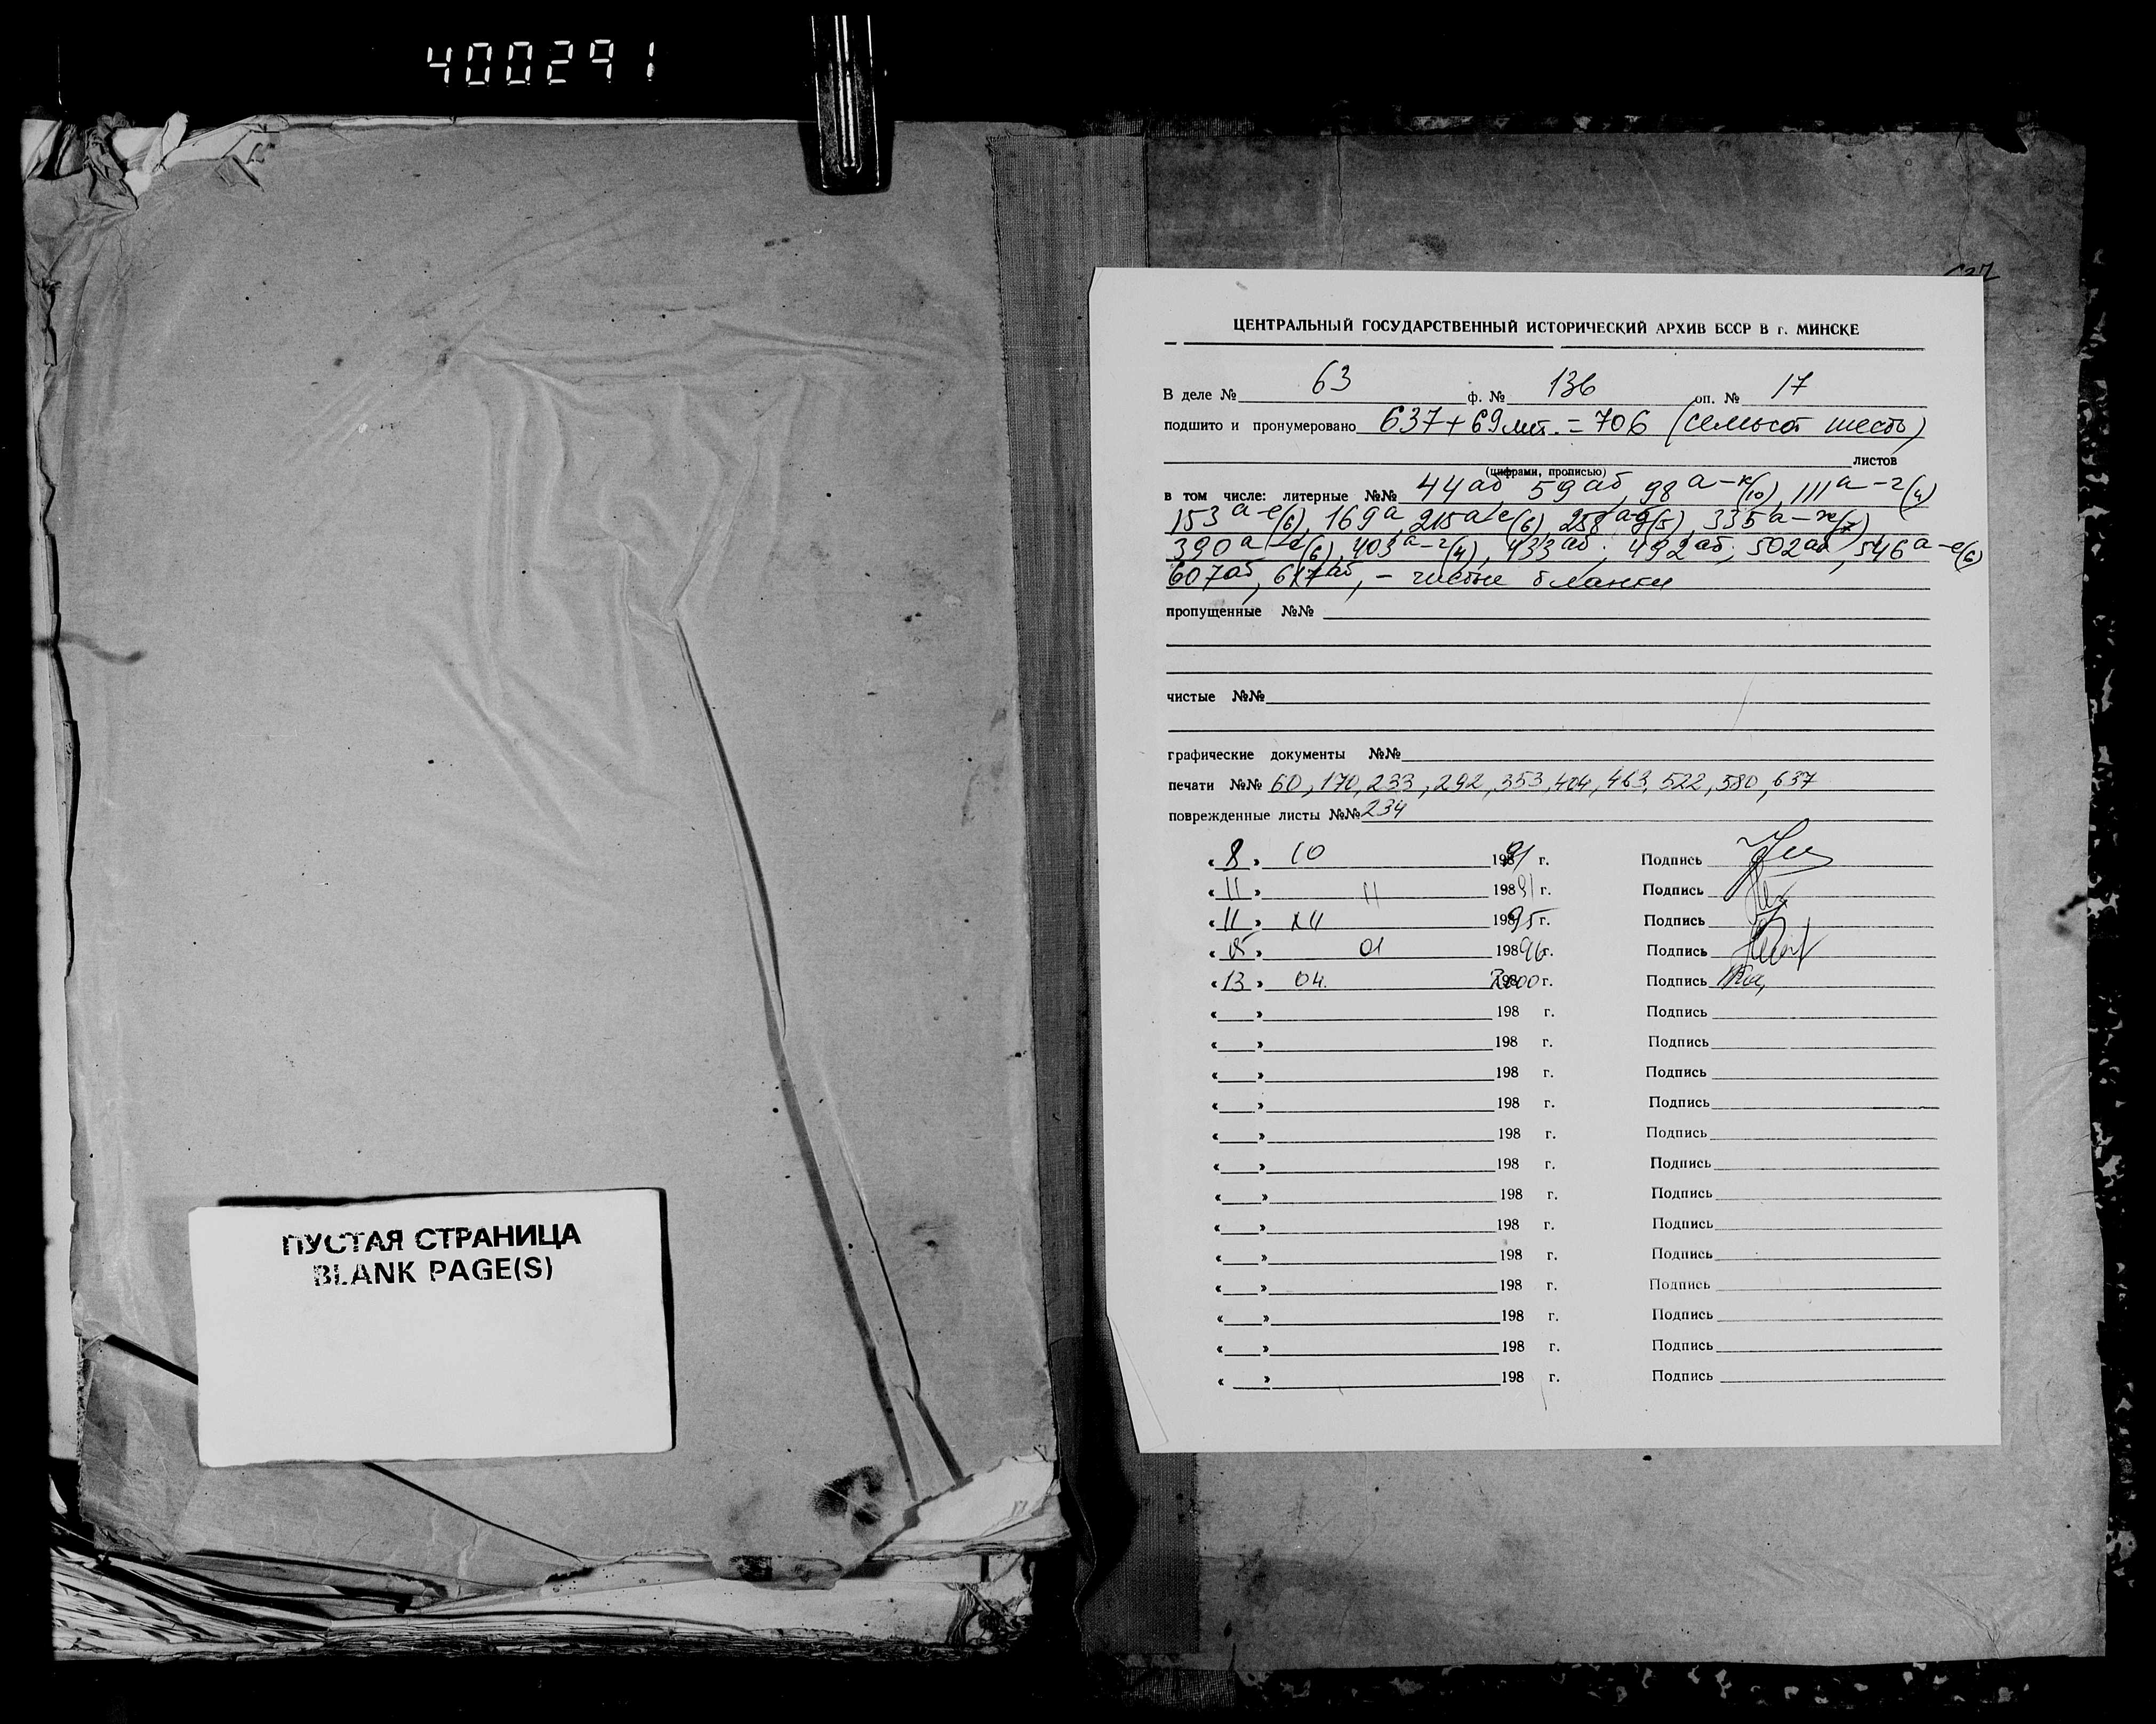 400291
ПУСТАЯ СТРАНИЦА
BLANK PAGE(S)
ЦЕНТРАЛЬНЫЙ ГОСУДАРСТВЕННЫЙ ИСТОРИЧЕСКИЙ АРХИВ БССР В г. МИНСКЕ
В деле № 63 ф. № 136 оп. № 17
подшито и пронумеровано 637+69 лит. = 706 (семьсот шесть)
листов
(цифрами, прописью)
в том числе: литерные №№ 44аб, 59аб, 98а-к(10), 111а-г(4)
153а-е(6), 169а, 215а-е(6), 258а-д(5), 335а-ж(7)
390а-е(6), 403а-г(4), 433аб, 492аб, 502аб, 546а-е(6)
607аб, 617аб, - чистые бланки
пропущенные №№
чистые №№
графические документы №№
печати №№ 60, 170, 233, 292, 353, 404, 463, 522, 580, 637
поврежденные листы №№ 234
« 8 » 10 1991 г. Подпись
« 11 » 11 19891 г. Подпись
« 11 » XII 1995 г. Подпись
« 15 » 01 19896 г. Подпись
« 13 » 04. 2000 г. Подпись
« » 198 г. Подпись
« » 198 г. Подпись
« » 198 г. Подпись
« » 198 г. Подпись
« » 198 г. Подпись
« » 198 г. Подпись
« » 198 г. Подпись
« » 198 г. Подпись
« » 198 г. Подпись
« » 198 г. Подпись
« » 198 г. Подпись
« » 198 г. Подпись
« » 198 г. Подпись